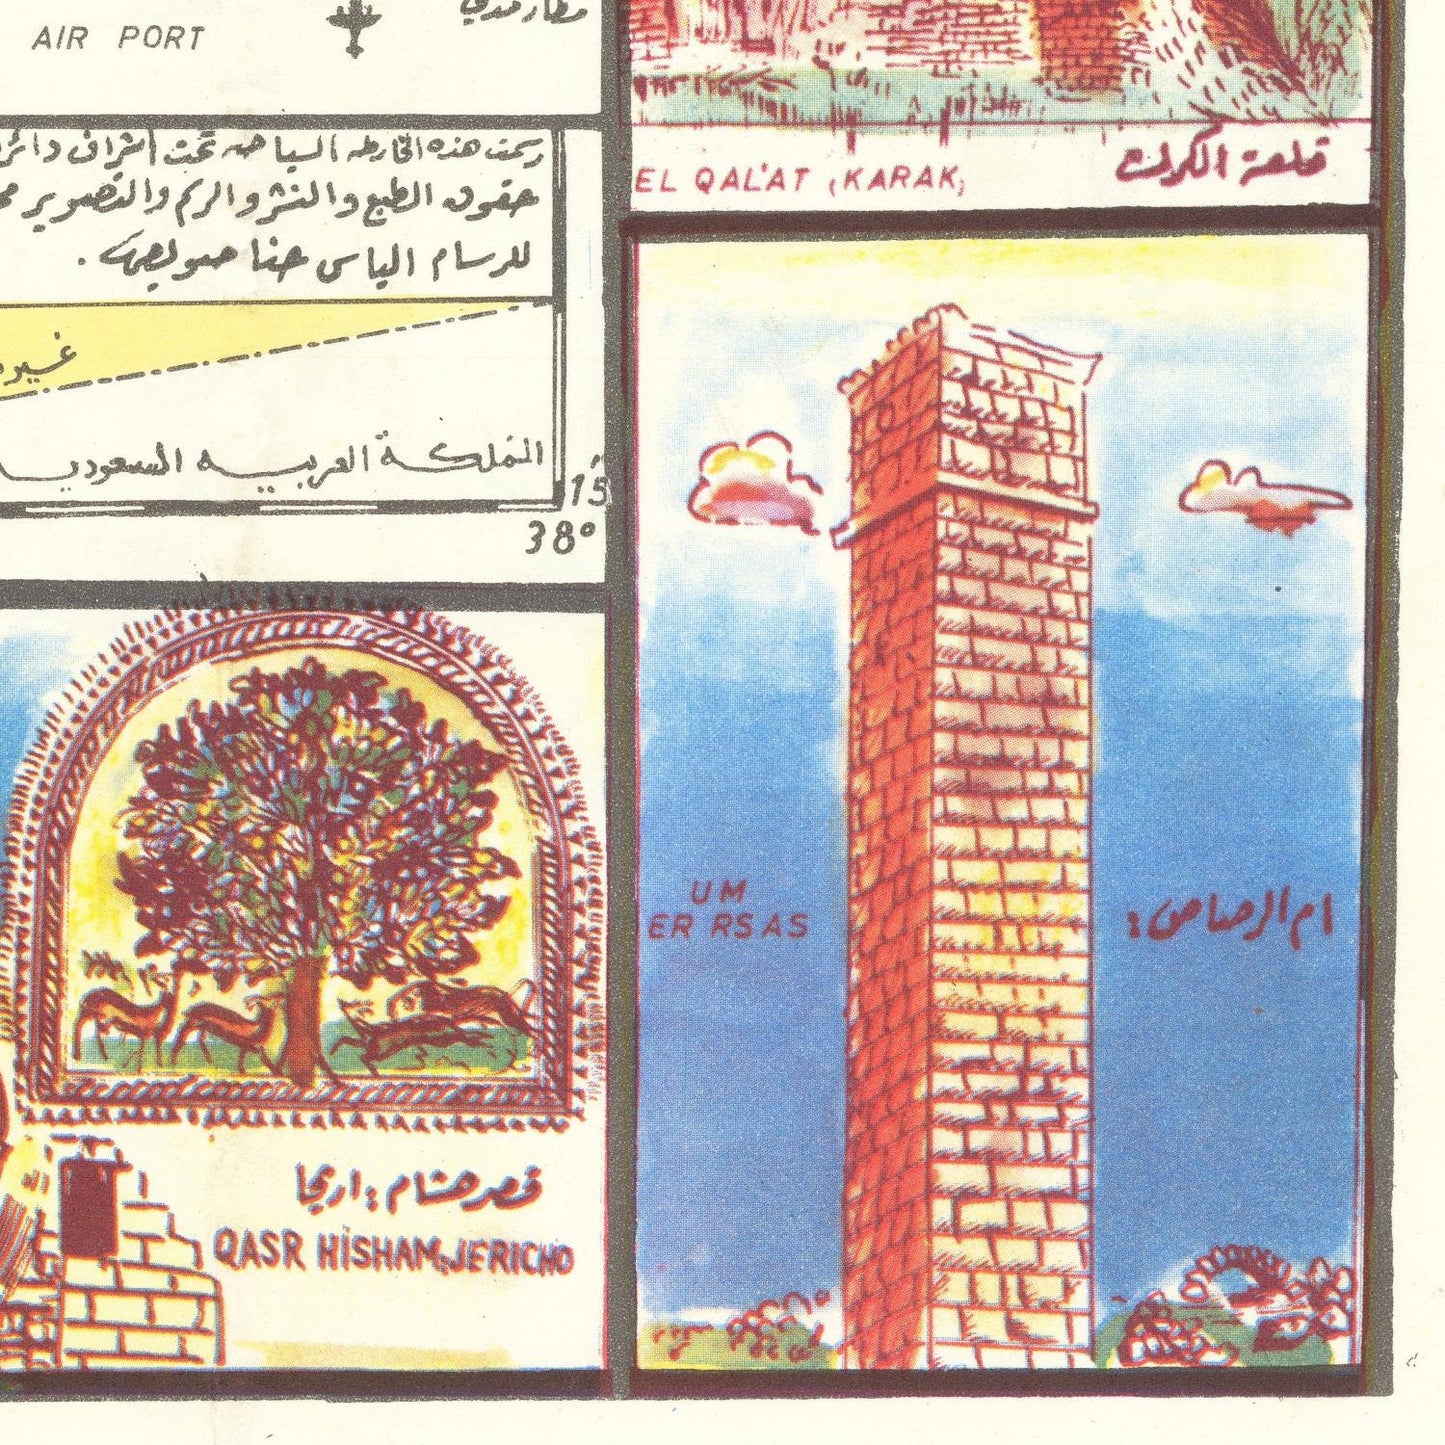 AIR PORT
مطار مدني
رسمت هذه الخارطه السياحيه تحت اشراف دائر
حقوق الطبع والنشر والرسم والتصوير
للرسام الياس حنا
المملكة العربيه السعوديه
15
38°
EL QAL'AT (KARAK)
قلعة الكرك
UM
ER RSAS
ام الرصاص:
قصر هشام: اريحا
QASR HISHAM, JERICHO